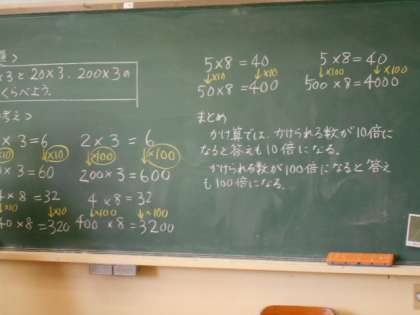 題＞
×3と20×3、200×3の
くらべよう。
考え＞
×3=6
×10 ×10
×3=60
4×8=32
×10 ×10
40×8=320
2×3=6
×100 ×100
200×3=600
4×8=32
×100 ×100
400×8=3200
5×8=40
×10 ×10
50×8=400
5×8=40
×100 ×100
500×8=4000
まとめ
かけ算では、かけられる数が10倍に
なると答えも10倍になる。
かけられる数が100倍になると答え
も100倍になる。